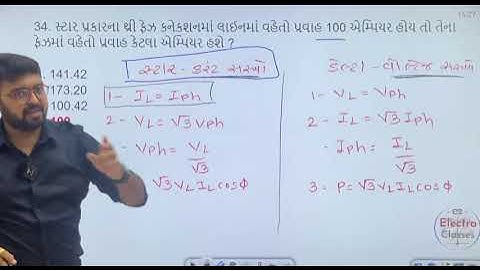 15:27
34. સ્ટાર પ્રકારના થ્રી ફેઝ કનેકશનમાં લાઈનમાં વહેતો પ્રવાહ 100 એમ્પિયર હોય તો તેના
ફેઝમાં વહેતો પ્રવાહ કેટલા એમ્પિયર હશે ?
141.42
173.20
100.42
100
સ્ટાર - કરંટ સરખો
1- IL = Iph
2 - VL = √3 Vph
- Vph = VL/√3
√3 VL IL cos ϕ
ડેલ્ટા - વોલ્ટેજ સરખો
1 - VL = Vph
2 - IL = √3 Iph
- Iph = IL/√3
3 - P = √3 VL IL cos ϕ
Electra
Classes